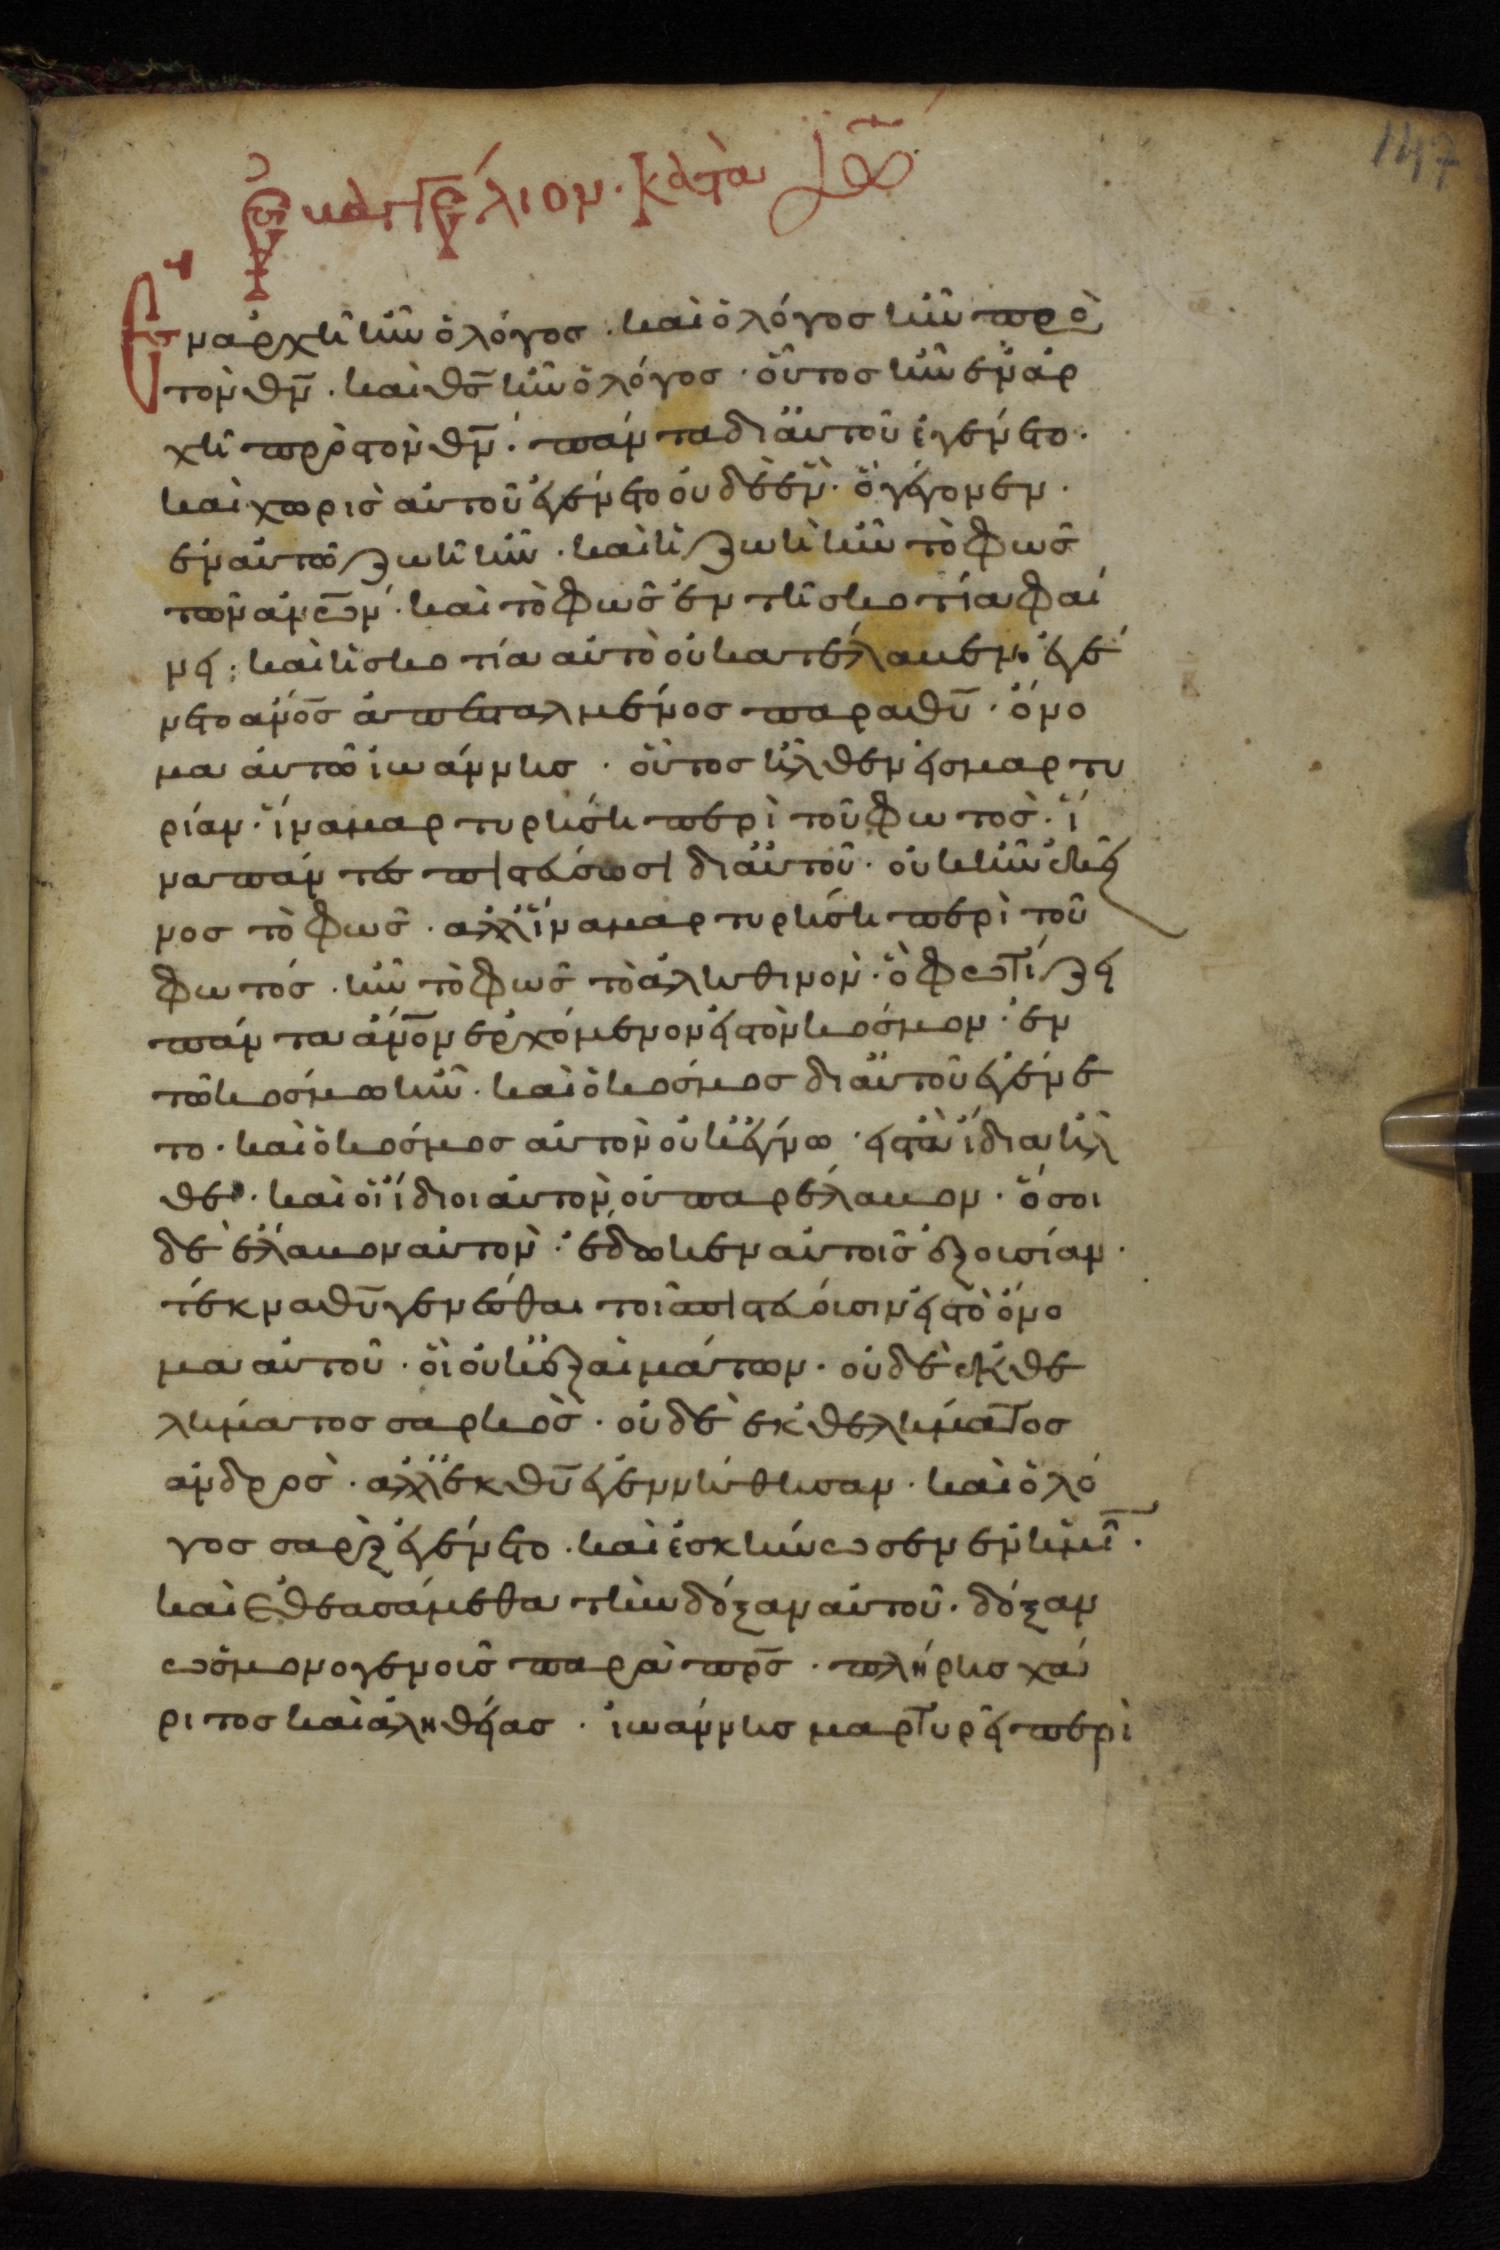 147
Ἐυαγγέλιον. κατὰ Ἰω̅
Ἐν ἀρχῆ ἦν ὁ λόγος. καὶ ὁ λόγος ἦν πρὸ
τὸν θν̅. καὶ θς̅ ἦν ὁ λόγος. οὗτος ἦν ἐν ἀρ
χῆ πρὸς τὸν θν̅. πάντα δι αὐτοῦ ἐγένετο.
καὶ χωρὶς αὐτοῦ ἐγένετο οὐδὲ ἓν. ὃ γέγονεν.
ἐν αὐτῶ ζωὴ ἦν. καὶ ἡ ζωὴ ἦν τὸ φῶς
τῶν ἀνων̅. καὶ τὸ φῶς ἐν τῆ σκοτία φαί
νει. καὶ ἡ σκοτία αὐτὸ οὐ κατέλαβεν. ἐγέ
νετο ἀνος̅ ἀπεσταλμένος παρα θυ̅. ὄνο
μα αὐτῶ ἰωάννης. οὗτος ἦλθεν εἰς μαρτυ
ρίαν. ἵνα μαρτυρήση περὶ τοῦ φωτὸς. ἵ
να πάντες πιστεύσωσι δι αὐτοῦ. οὐκ ἦν ἐκεῖ
νος τὸ φῶς. ἀλλ ἵνα μαρτυρήση περὶ τοῦ
φωτός. ἦν τὸ φῶς τὸ ἀληθινὸν. ὃ φωτίζει
πάντα ἀνον̅ ἐρχόμενον εἰς τὸν κόσμον. ἐν
τῶ κόσμω ἦν. καὶ ὁ κόσμος δι αὐτοῦ ἐγένε
το. καὶ ὁ κόσμος αὐτὸν οὐκ ἔγνω. εἰς τὰ ἴδια ἦλ
θε. καὶ οἱ ἴδιοι αὐτὸν οὐ παρέλαβον. ὅσοι
δὲ ἔλαβον αὐτὸν. ἔδωκεν αὐτοῖς ἐξουσίαν.
τέκνα θυ̅ γενέσθαι τοῖς πιστεύουσιν εἰς τὸ ὄνο
μα αὐτοῦ. οἳ οὐκ ἐξ αἱμάτων. οὐδὲ ἐκ θε
λήματος σαρκὸς. οὐδὲ ἐκ θελήματος
ἀνδρὸς. ἀλλ ἐκ θυ̅ ἐγεννήθησαν. καὶ ὁ λό
γος σὰρξ ἐγένετο. καὶ ἐσκήνωσεν ἐν ἡμῖ̅.
καὶ ἐθεασάμεθα τὴν δόξαν αὐτοῦ. δόξαν
ὡς μονογενοῦς παρὰ πρς̅. πλήρης χά
ριτος καὶ ἀληθείας. ἰωάννης μαρτυρεῖ περὶ